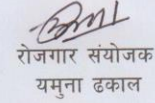 रोजगार संयोजक
यमुना ढकाल